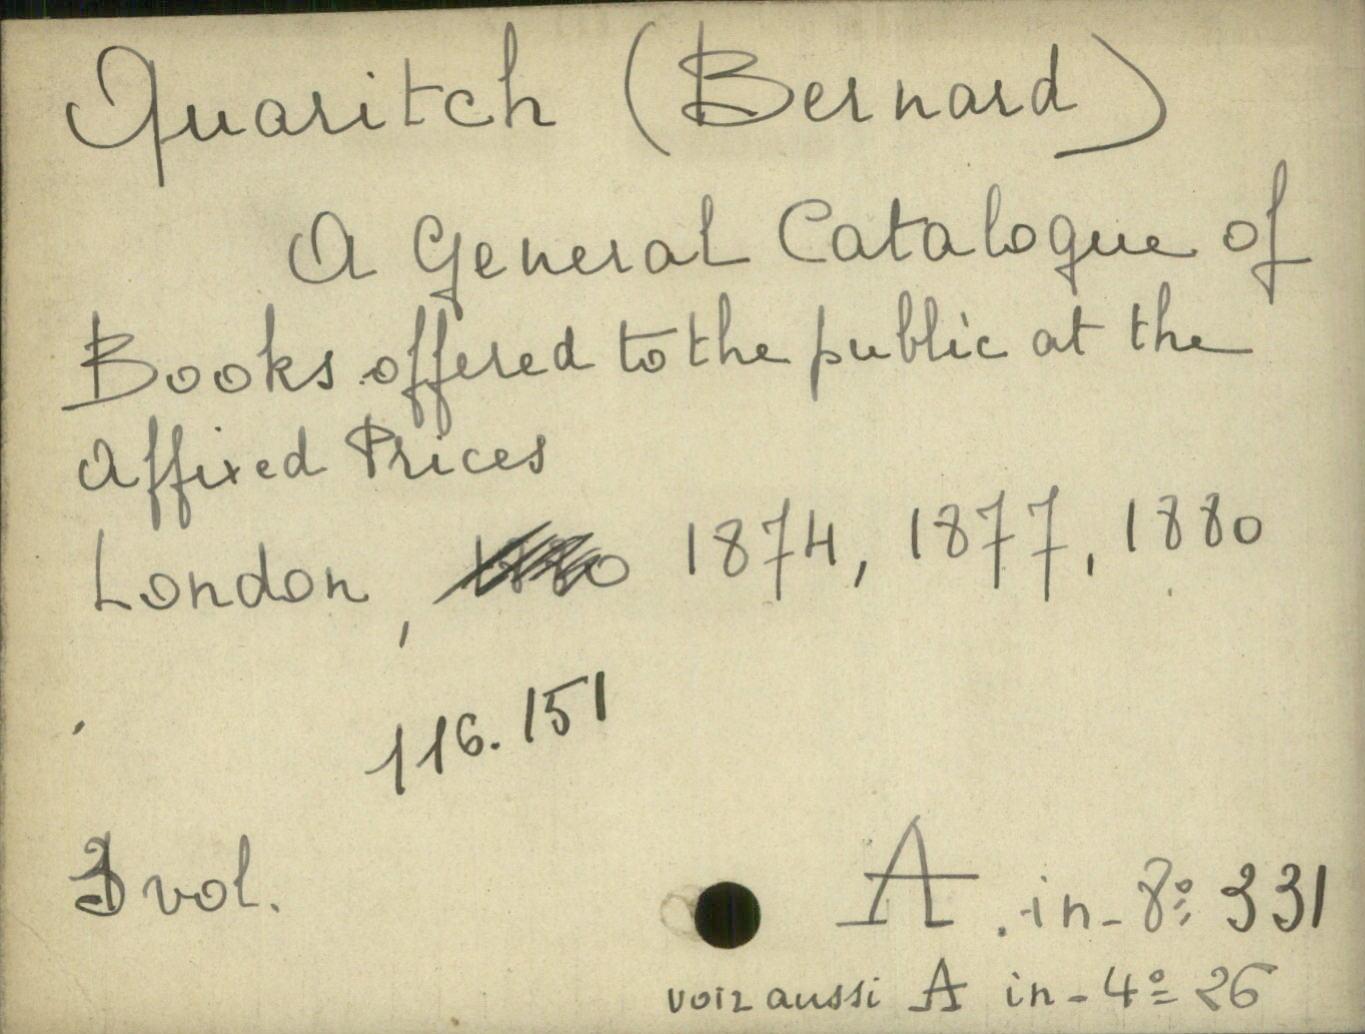 Quaritch (Bernard)
A General Catalogue of
Books offered to the public at the
affixed Prices
London, 1874, 1877, 1880
116.151
3 vol.
A. in-8º: 331
voir aussi A in-4º 26